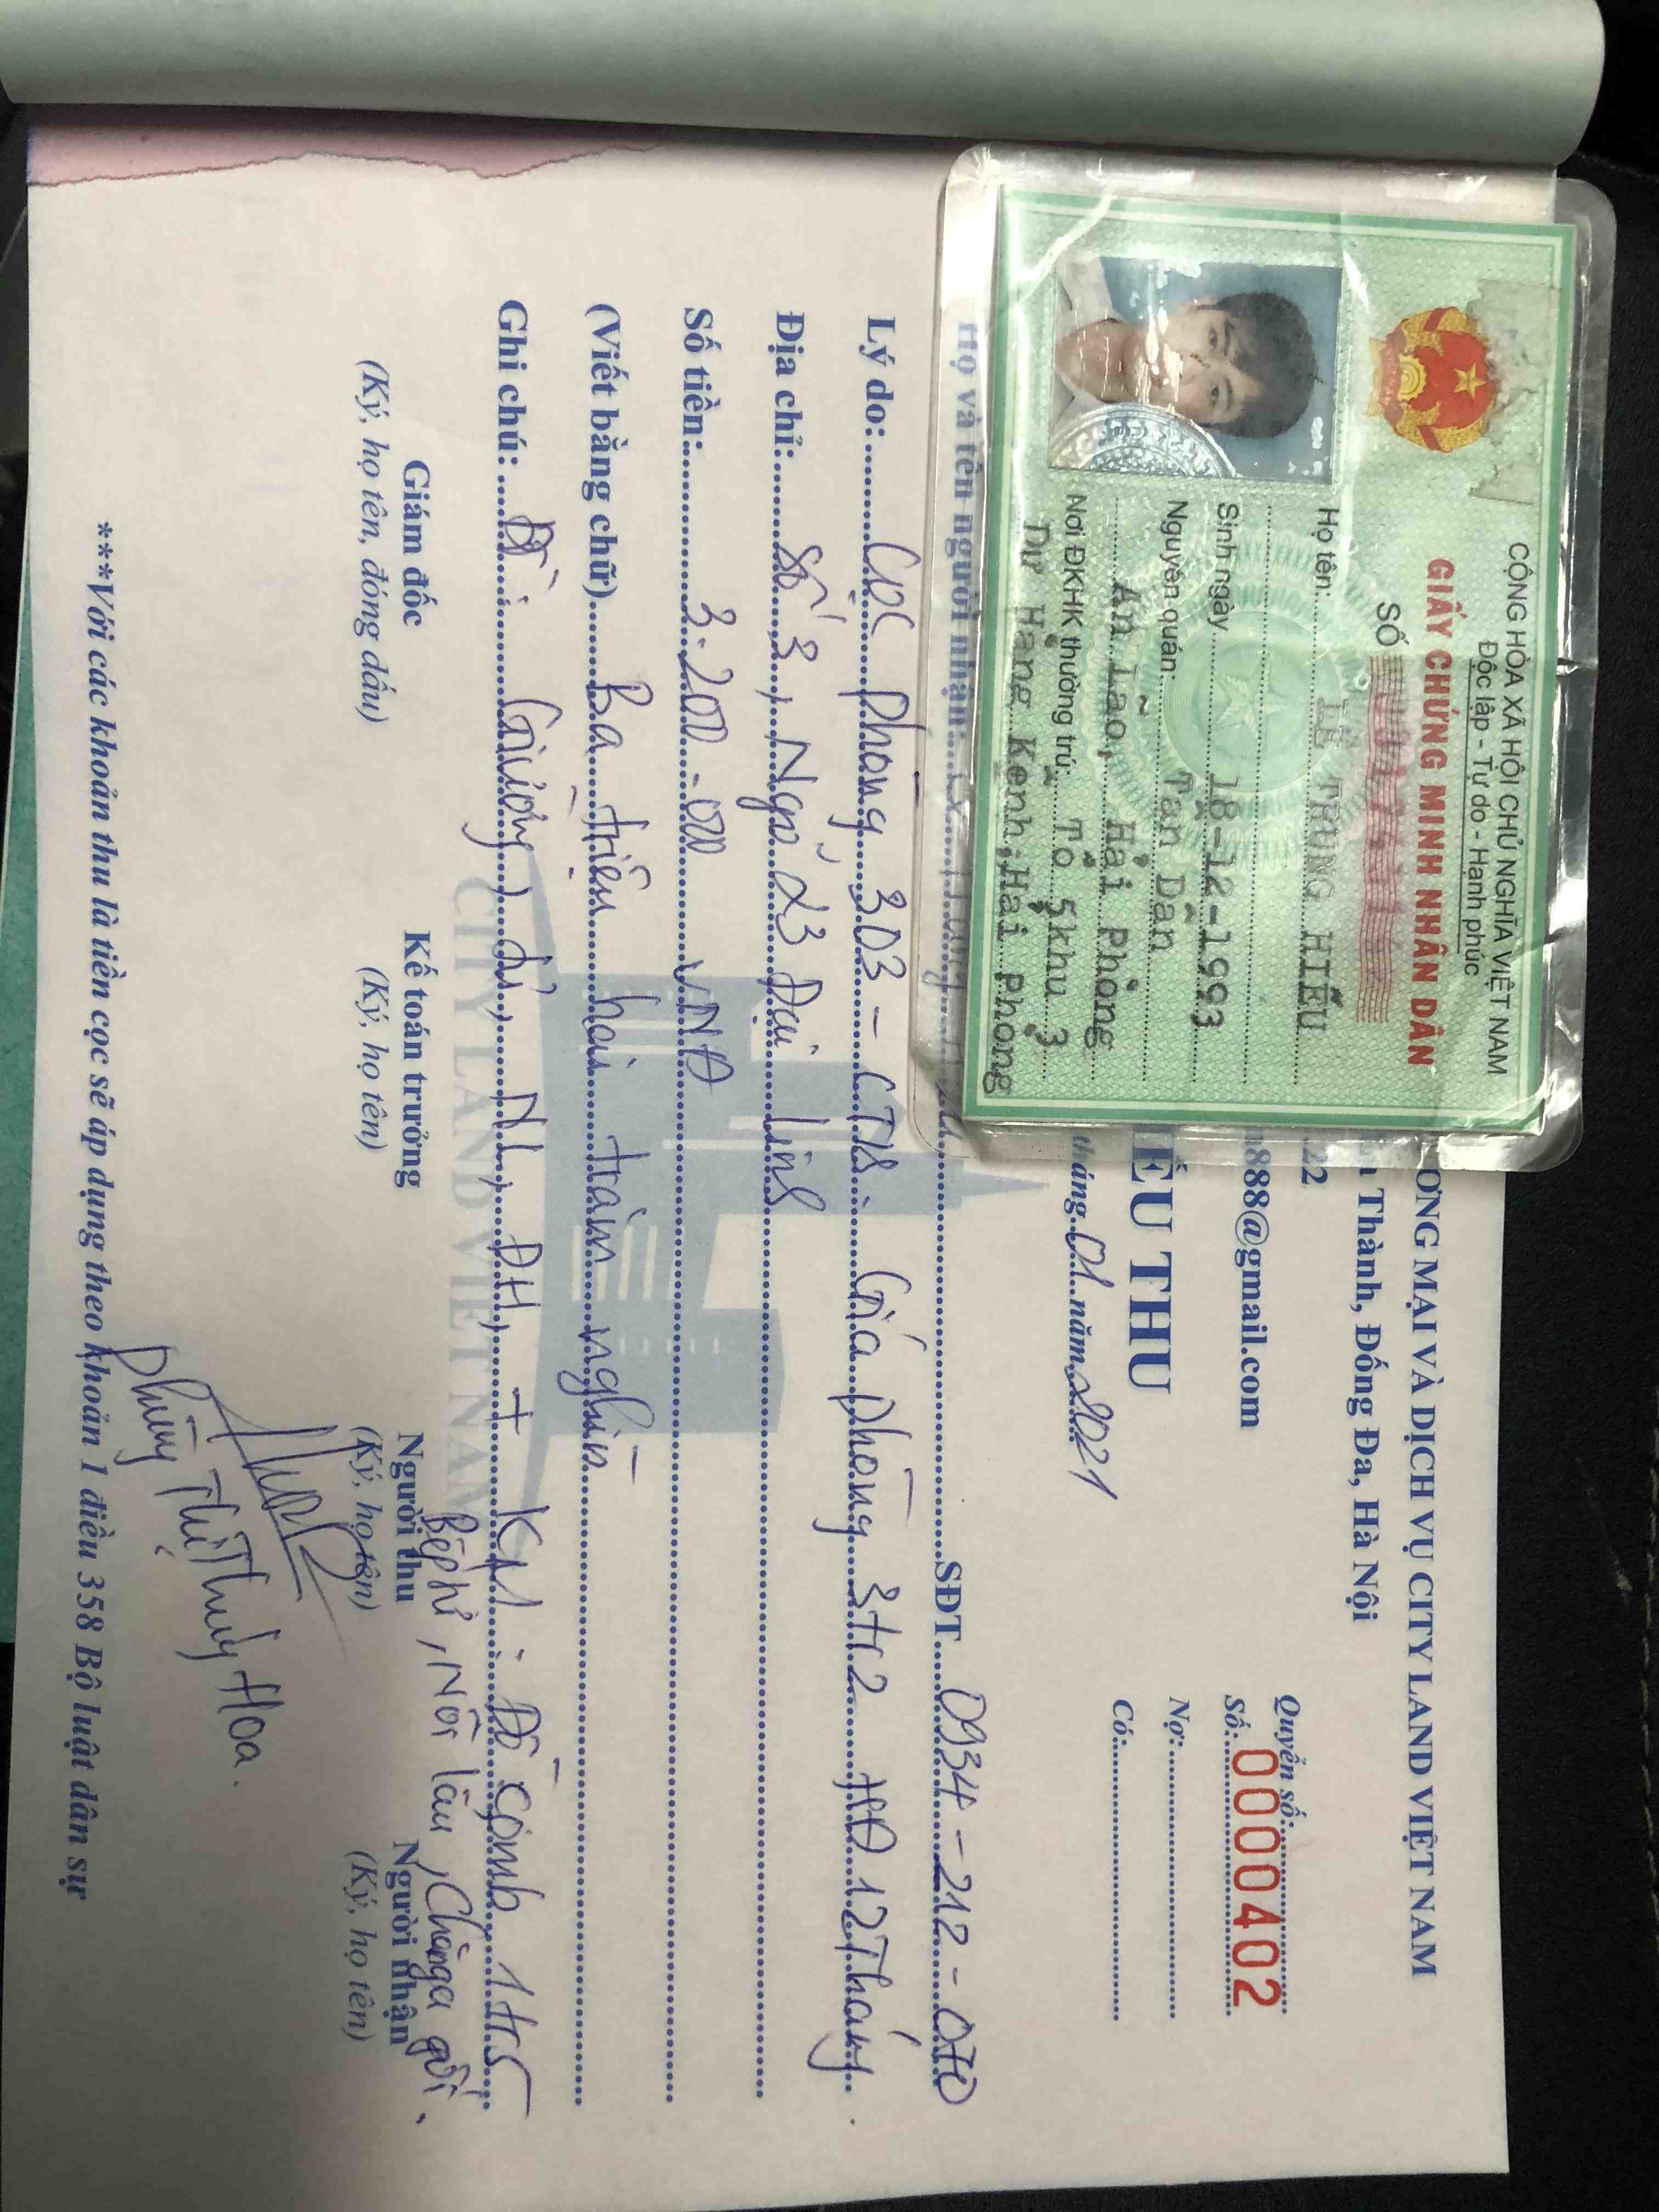 CỘNG HÒA XÃ HỘI CHỦ NGHĨA VIỆT NAM
Độc lập - Tự do - Hạnh phúc
GIẤY CHỨNG MINH NHÂN DÂN
SỐ
Họ tên: LÊ TRUNG HIẾU
Sinh ngày 18-12-1993
Nguyên quán: Tân Dân
An Lão, Hải Phòng
Nơi ĐKHK thường trú: Tổ 5khu 3
Dư Hàng Kênh, Hải Phòng
ƠNG MẠI VÀ DỊCH VỤ CITY LAND VIỆT NAM
Thành, Đống Đa, Hà Nội
22
88@gmail.com
ẾU THU
tháng 01 năm 2021
Quyển số:
Số: 0000402
Nợ:
Có:
Họ và tên người nhận: SĐT 0934-212-070
Lý do: Cọc phòng 303 - CTN. Giá phòng 3tr2 HĐ 12 Tháng.
Địa chỉ: Số 3, Ngõ 23 Đại Linh
Số tiền: 3.200.000 VNĐ
(Viết bằng chữ) Ba triệu hai trăm nghìn
Ghi chú: Đồ: Giường, tủ, NL, ĐH, + KM: Đồ cạnh 1tr5
Bếp hi, Nồi lẩu, Chăn ga gối.
CITY LAND VIET NAM
Giám đốc Kế toán trưởng Người thu Người nhận
(Ký, họ tên, đóng dấu) (Ký, họ tên) (Ký, họ tên) (Ký, họ tên)
Phùng Thị Thúy Hoa.
***Với các khoản thu là tiền cọc sẽ áp dụng theo khoản 1 điều 358 Bộ luật dân sự